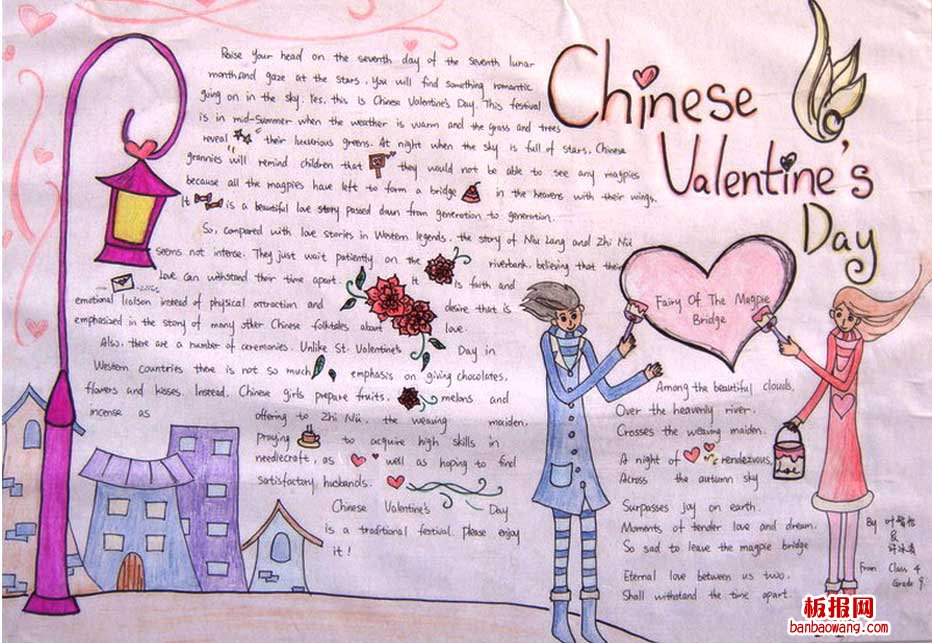 Chinese
Valentine's
Day
Raise your head on the seventh day of the seventh lunar
month,and gaze at the stars, you will find something romantic
going on in the sky. Yes, this is Chinese Valentine's Day. This festival
is in mid-summer when the weather is warm and the grass and trees
reveal their luxurious greens. At night when the sky is full of stars, Chinese
grannies will remind children that they would not be able to see any magpies
because all the magpies have left to form a bridge in the heavens with their wings.
It is a beautiful love story passed down from generation to generation.
So, compared with love stories in Western legends, the story of Niu Lang and Zhi Nü
seems not intense. They just wait patiently on the riverbank, believing that their
Love can withstand their time apart. It is faith and
emotional liaison instead of physical attraction and desire that is
emphasized in the story of many other Chinese folktales about love.
Also, there are a number of ceremonies. Unlike St. Valentine's Day in
Western countries there is not so much emphasis on giving chocolates,
flowers and kisses. Instead, Chinese girls prepare fruits, melons and
incense as offering to Zhi Nü, the weaving maiden,
praying to acquire high skills in
needlecraft, as well as hoping to find
satisfactory husbands.
Chinese Valentine's Day
is a traditional festival. Please enjoy
it!
Fairy Of The Magpie
Bridge
Among the beautiful clouds,
Over the heavenly river,
Crosses the weaving maiden.
A night of rendezvous,
Across the autumn sky
Surpasses joy on earth.
Moments of tender love and dream,
So sad to leave the magpie bridge
Eternal love between us two,
Shall withstand the time apart.
love
By
From: Class 4
Grade 9.
板报网
banbaowang.com